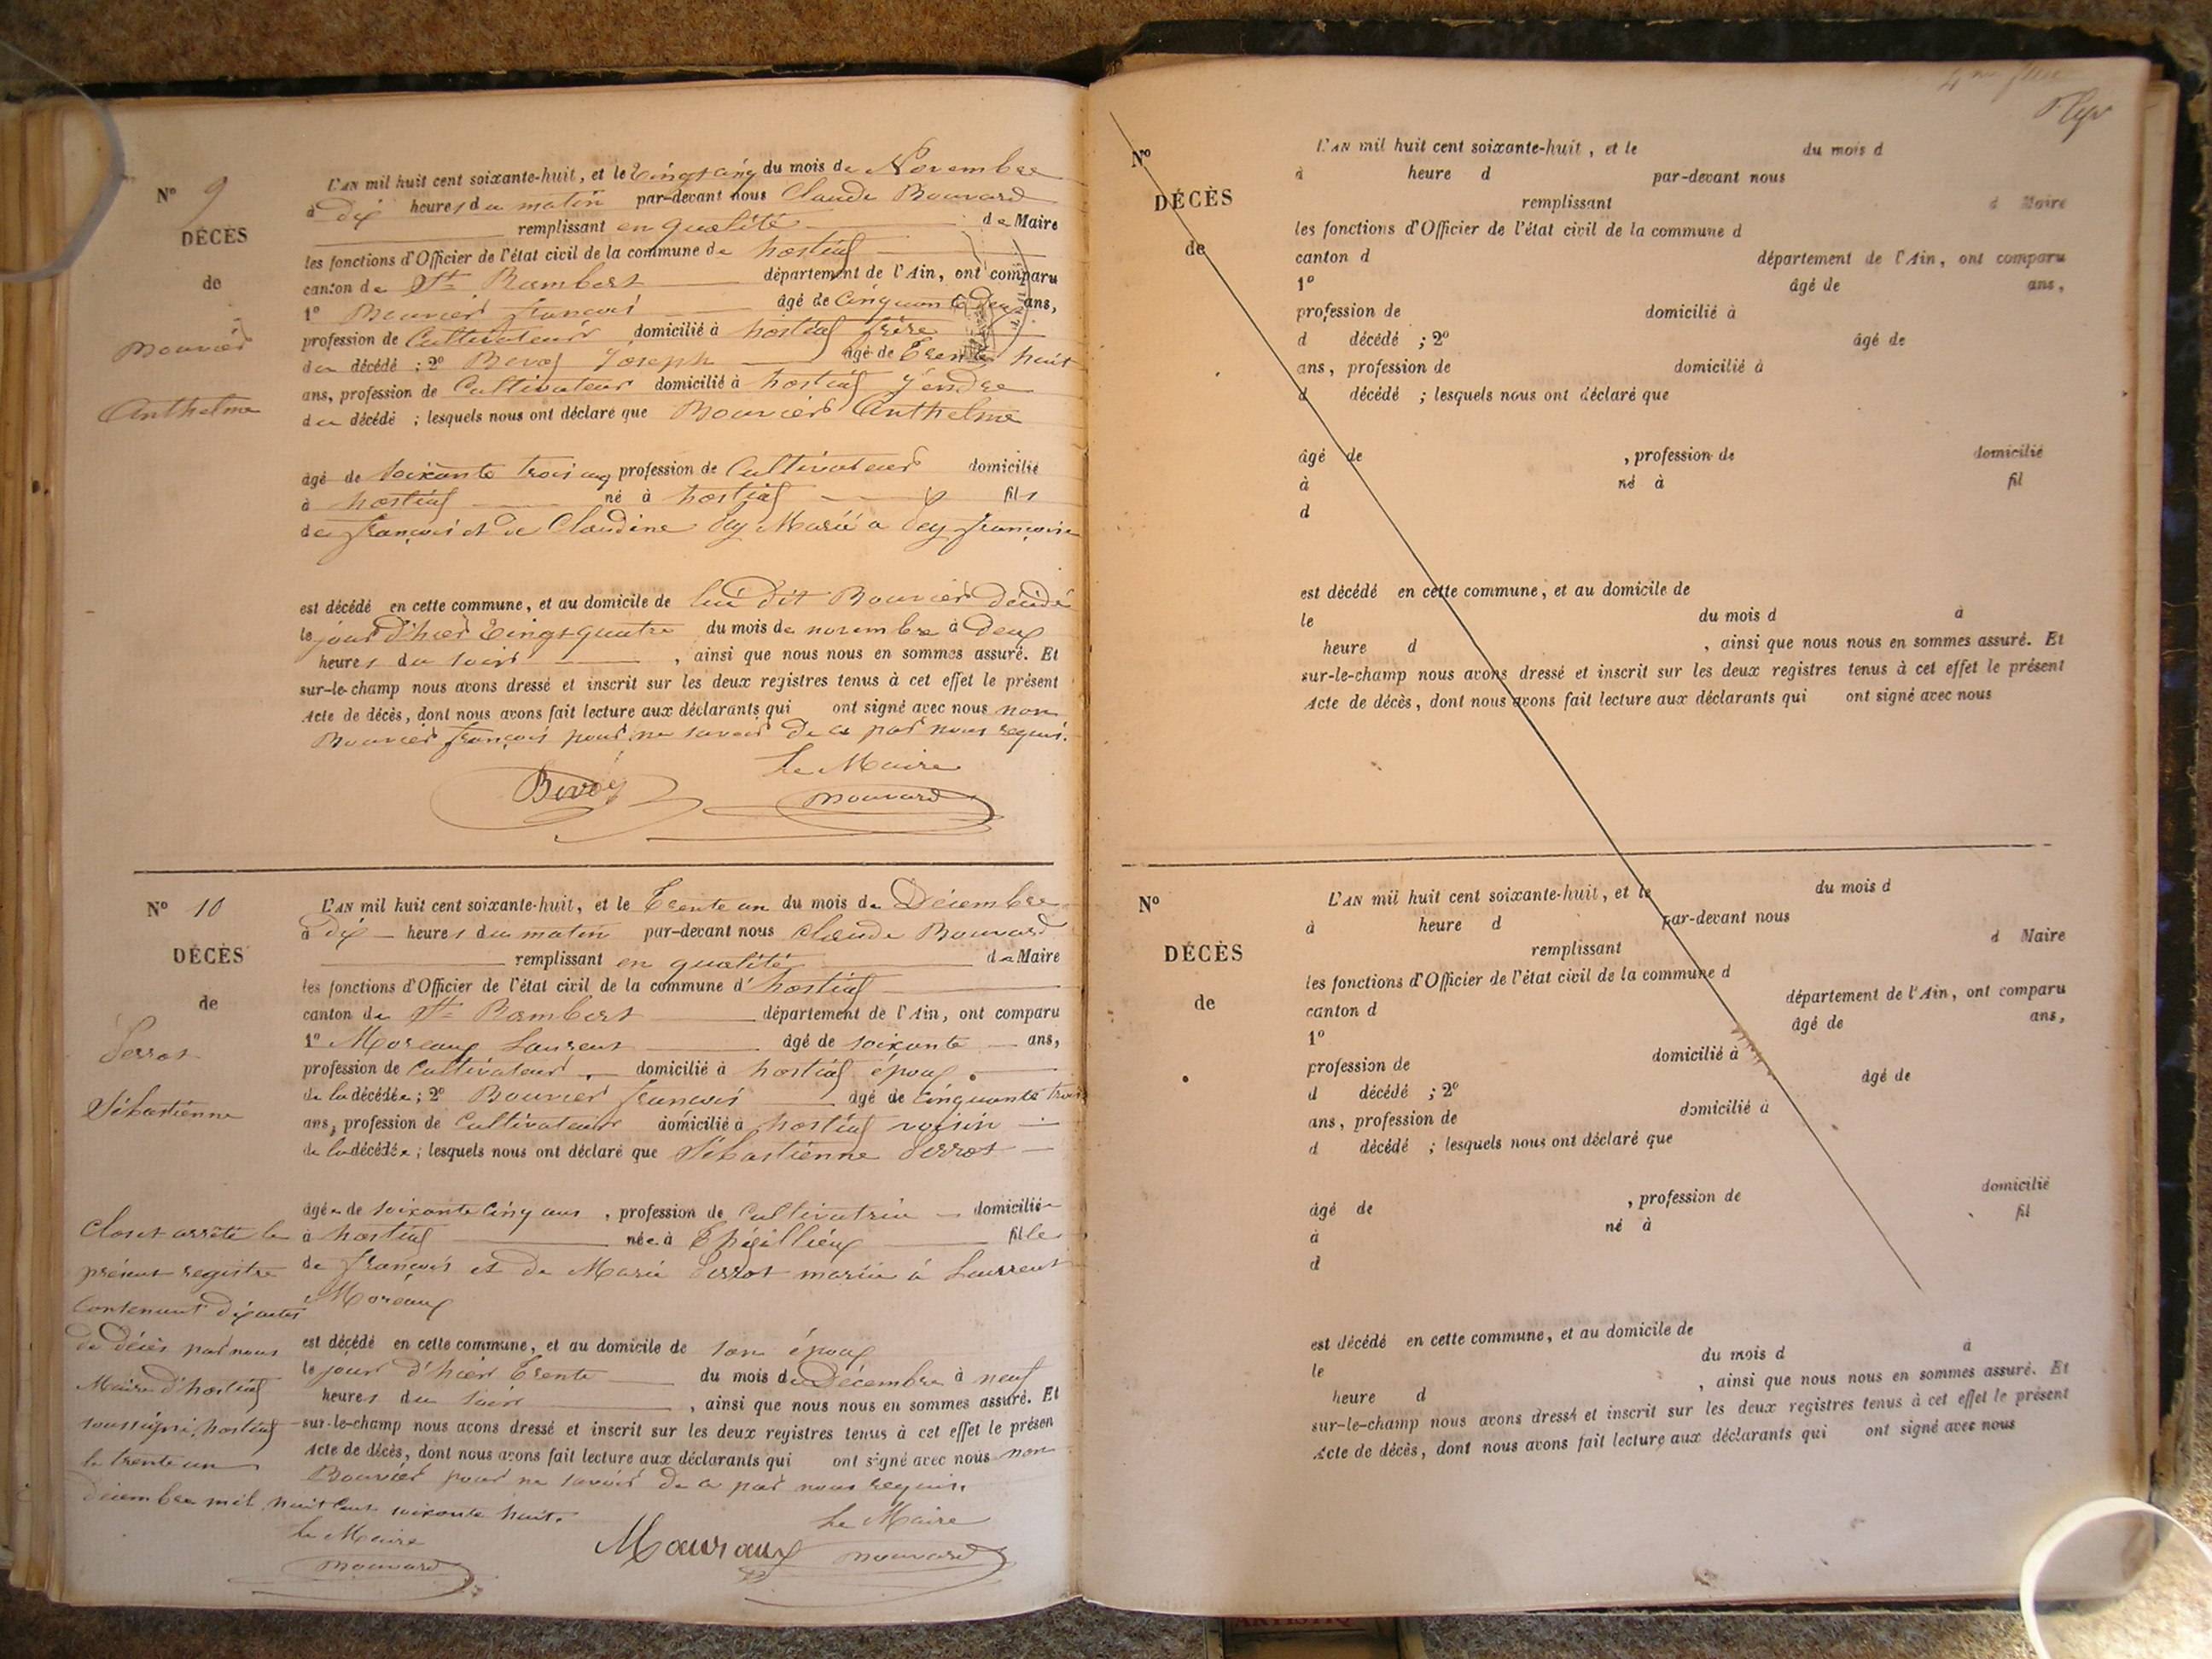 N° 9
DÉCÈS
de
Bouvier
Anthelme
L'AN mil huit cent soixante-huit, et le Vingt cinq du mois de Novembre
à Dix heures du matin par-devant nous Claude Bouvard
remplissant en qualité de Maire
les fonctions d'Officier de l'état civil de la commune de hostiaz
canton de St Rambert département de l'Ain, ont comparu
1° Bouvier françois âgé de Cinquante Deux ans,
profession de Cultivateur domicilié à hostiaz frère
du décédé ; 2° Bevoz Joseph âgé de Trente huit
ans, profession de Cultivateur domicilié à hostiaz gendre
du décédé ; lesquels nous ont déclaré que Bouvier Anthelme
âgé de soixante trois ans profession de Cultivateur domicilié
à hostiaz né à hostiaz fils
de françois et de Claudine Marié a françoise
est décédé en cette commune, et au domicile de lui dit Bouvier décédé
le jour d'hier Vingt quatre du mois de novembre à Deux
heures du soir , ainsi que nous nous en sommes assuré. Et
sur-le-champ nous avons dressé et inscrit sur les deux registres tenus à cet effet le présent
Acte de décès, dont nous avons fait lecture aux déclarants qui ont signé avec nous non
Bouvier françois pour ne savoir de ce par nous requis.
Le Maire
Bevoz Bouvard
N° 10
DÉCÈS
de
Perrot
Sébastienne
L'AN mil huit cent soixante-huit, et le Trente un du mois de Décembre
à dix heures du matin par-devant nous Claude Bouvard
remplissant en qualité de Maire
les fonctions d'Officier de l'état civil de la commune d'hostiaz
canton de St Rambert département de l'Ain, ont comparu
1° Moreaux Laurent âgé de soixante ans,
profession de Cultivateur domicilié à hostiaz époux
de la décédée ; 2° Bouvier françois âgé de Cinquante trois
ans, profession de Cultivateur domicilié à hostiaz voisin
de la décédée ; lesquels nous ont déclaré que Sébastienne Perrot
âgée de soixante Cinq ans , profession de Cultivatrice domiciliée
à hostiaz née à fille
de françois et de Marie Perrot mariée à Laurent
Moreaux
est décédé en cette commune, et au domicile de son époux
le jour d'hier Trente du mois de Décembre à neuf
heures du soir , ainsi que nous nous en sommes assuré. Et
sur-le-champ nous avons dressé et inscrit sur les deux registres tenus à cet effet le présen
Acte de décès, dont nous avons fait lecture aux déclarants qui ont signé avec nous non
Bouvier pour ne savoir de ce par nous requis.
Le Maire
Mouraux Bouvard
Clos et arrêté le
présent registre
Contenant dix actes
de décès par nous
Maire d'hostiaz
soussigné, hostiaz
le trente un
décembre mil huit cent soixante huit.
Le Maire
Bouvard
N°
DÉCÈS
de
L'AN mil huit cent soixante-huit, et le du mois d
à heure d par-devant nous
remplissant d Maire
les fonctions d'Officier de l'état civil de la commune d
canton d département de l'Ain, ont comparu
1° âgé de ans,
profession de domicilié à
d décédé ; 2° âgé de
ans, profession de domicilié à
d décédé ; lesquels nous ont déclaré que
âgé de , profession de domicilié
à né à fil
d
est décédé en cette commune, et au domicile de
le du mois d à
heure d , ainsi que nous nous en sommes assuré. Et
sur-le-champ nous avons dressé et inscrit sur les deux registres tenus à cet effet le présent
Acte de décès, dont nous avons fait lecture aux déclarants qui ont signé avec nous
N°
DÉCÈS
de
L'AN mil huit cent soixante-huit, et le du mois d
à heure d par-devant nous
remplissant d Maire
les fonctions d'Officier de l'état civil de la commune d
canton d département de l'Ain, ont comparu
1° âgé de ans,
profession de domicilié à
d décédé ; 2° âgé de
ans, profession de domicilié à
d décédé ; lesquels nous ont déclaré que
âgé de , profession de domicilié
à né à fil
d
est décédé en cette commune, et au domicile de
le du mois d à
heure d , ainsi que nous nous en sommes assuré. Et
sur-le-champ nous avons dressé et inscrit sur les deux registres tenus à cet effet le présent
Acte de décès, dont nous avons fait lecture aux déclarants qui ont signé avec nous